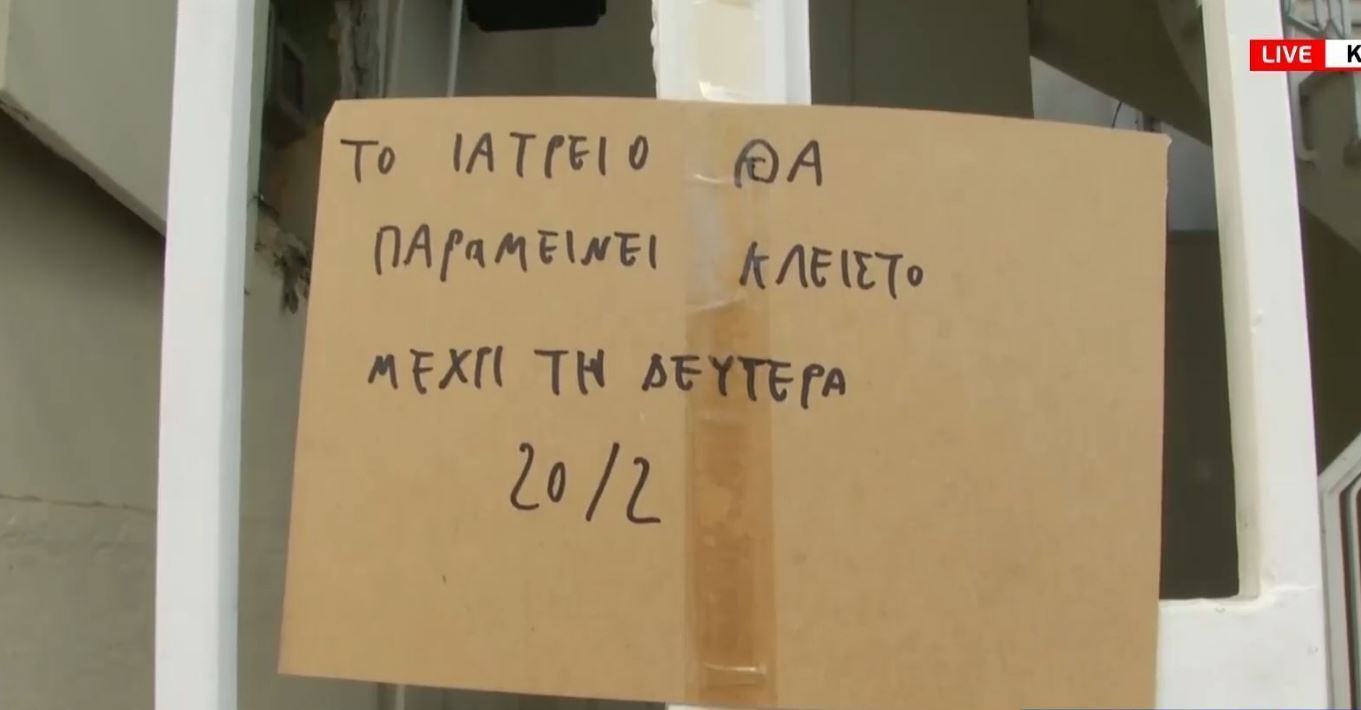 LIVE K
ΤΟ ΙΑΤΡΕΙΟ ΘΑ
ΠΑΡαΜΕΙΝΕΙ ΚΛΕΙΣΤΟ
ΜΕΧΠΙ ΤΗ ΔΕΥΤΕΡΑ
20/2